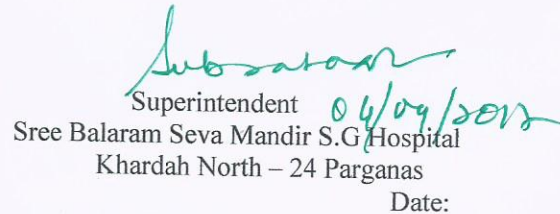 Superintendent
Sree Balaram Seva Mandir S.G Hospital
Khardah North – 24 Parganas
Date: